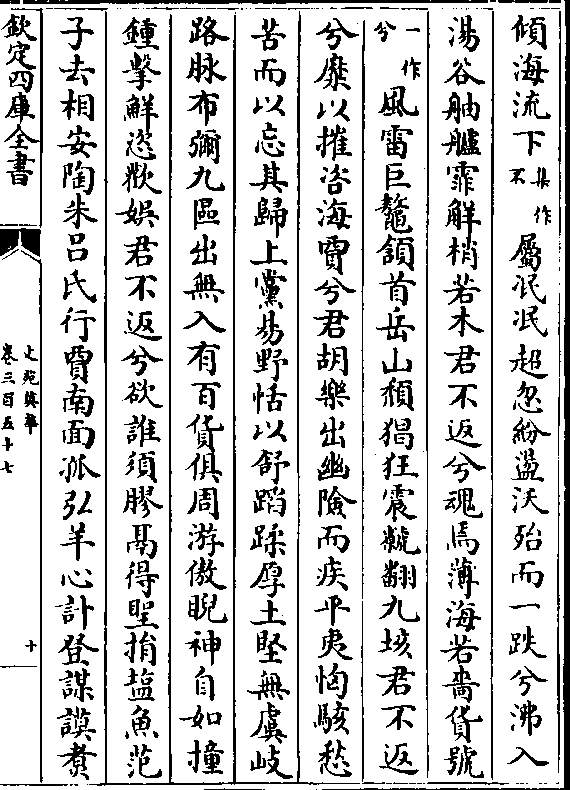 傾海流下集作不屬泯泯超忽紛盪沃殆而一跌兮沸入
湯谷舳艫霏解梢若木君不返兮魂焉薄海若嗇貨號
一作兮風雷巨鼇頷首岳山頹猖狂震虩翻九垓君不返
兮糜以摧咨海賈兮君胡樂出幽險而疾平夷恟駭愁
苦而以忘其歸上黨易野恬以舒蹈蹂厚土堅無虞岐
路脉布彌九區出無入有百貨俱周游傲睨神自如撞
鍾擊鮮恣歡娛君不返兮欲誰須膠鬲得聖捐鹽魚范
子去相安陶朱吕氏行賈南面孤弘羊心計登謀謨煮
欽定四庫全書
文苑英華
卷三百五十七
十